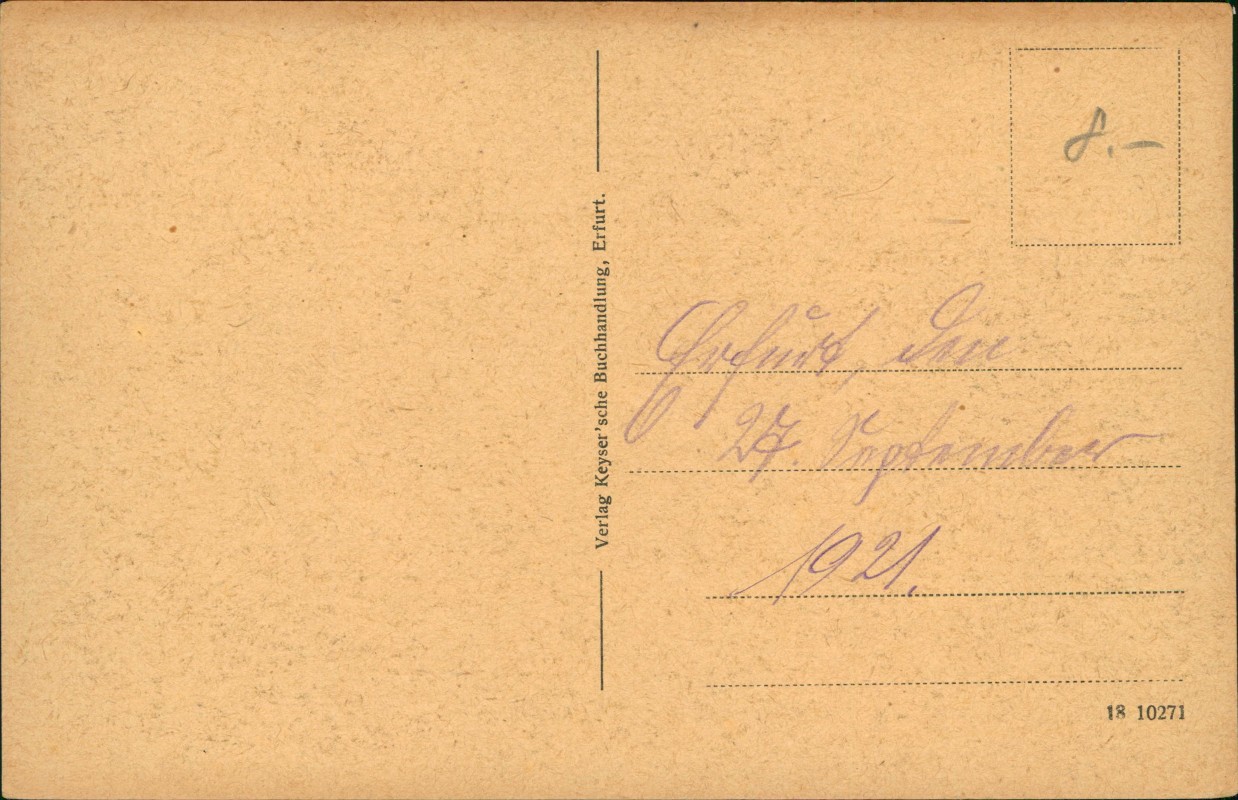 Verlag Keyser'sche Buchhandlung, Erfurt.
8.—
Erfurt, den
27. September
1921.
18 10271